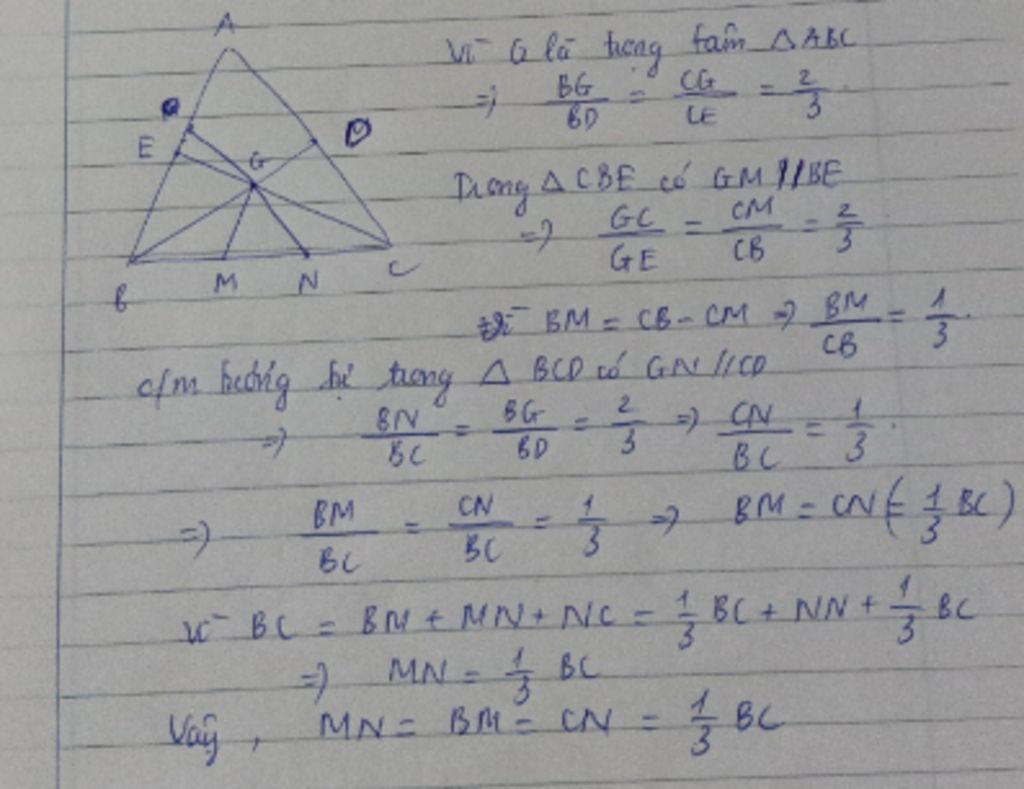 A
Vì G là trọng tâm △ABC
=> BG/BD = CG/CE = 2/3.
E
G
D
B
M
N
C
Trong △CBE có GM // BE
=> GC/GE = CM/CB = 2/3
BM = CB - CM => BM/CB = 1/3.
c/m tương tự trong △ BCD có GN // CD
=> BN/BC = BG/BD = 2/3 => CN/BC = 1/3.
=> BM/BC = CN/BC = 1/3 => BM = CN (= 1/3 BC)
vì BC = BM + MN + NC = 1/3 BC + NN + 1/3 BC
=> MN = 1/3 BC
Vậy, MN = BM = CN = 1/3 BC